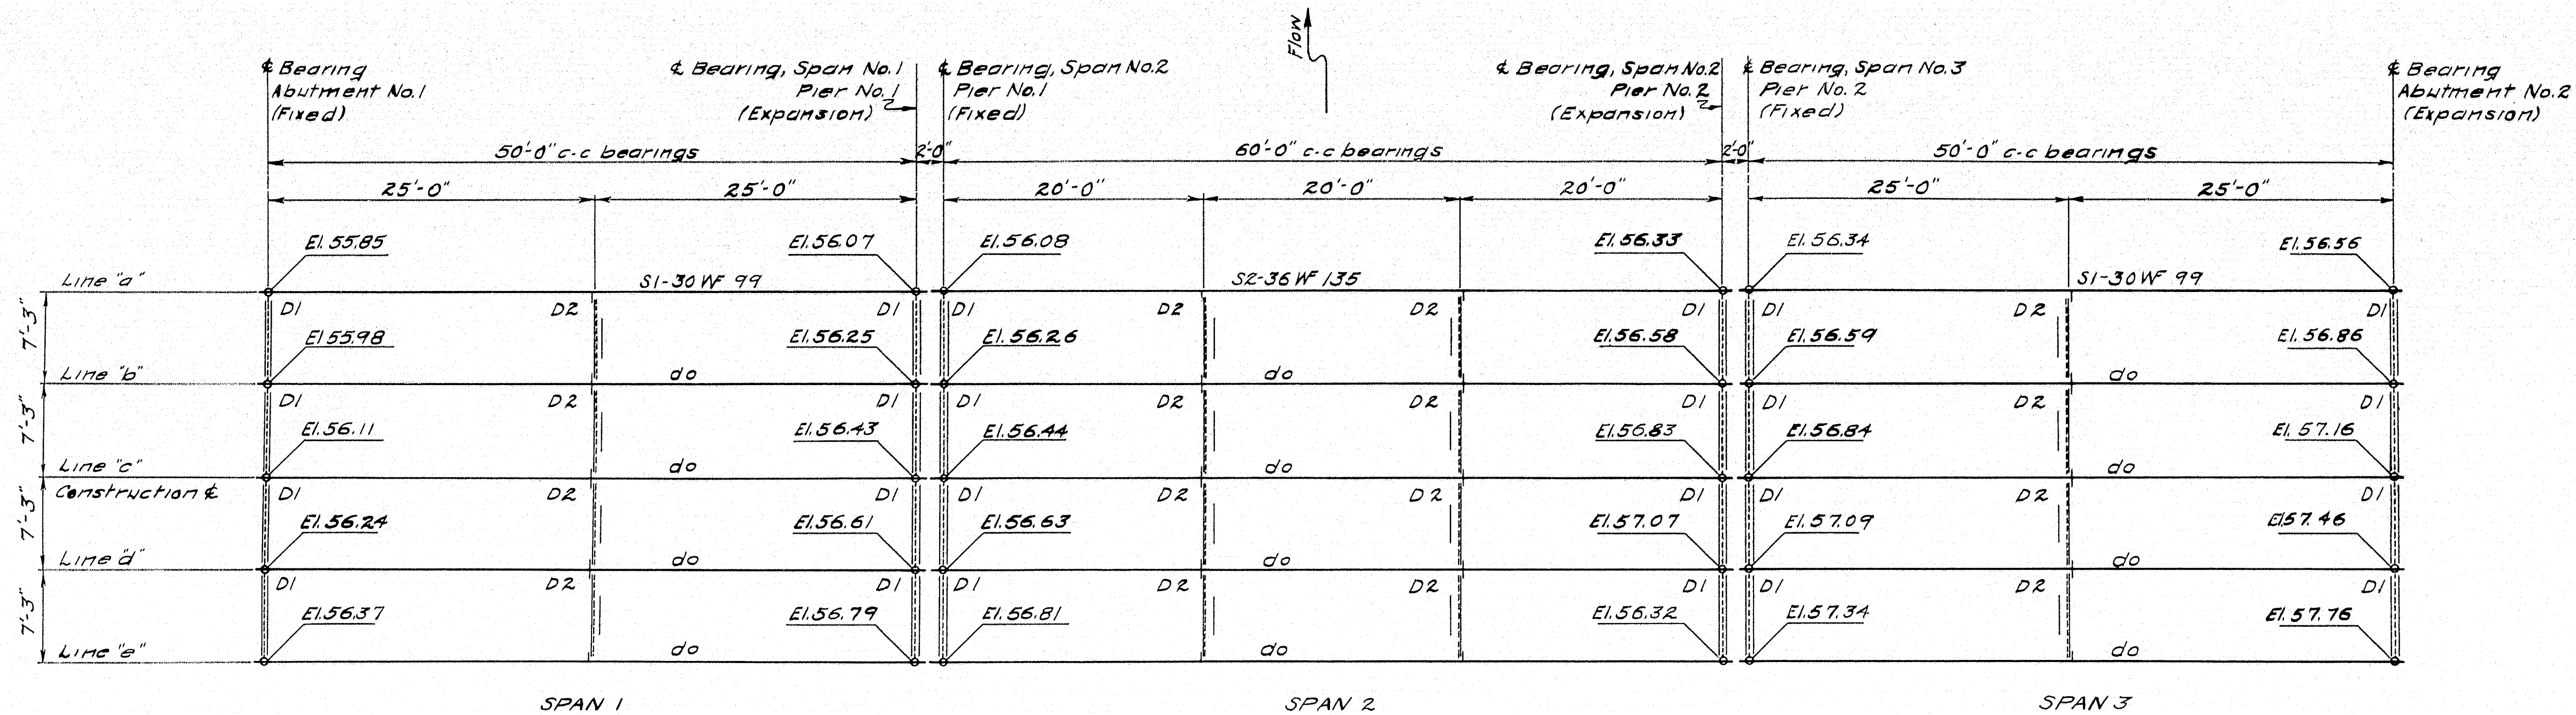 Flow
℄ Bearing
Abutment No.1
(Fixed)
℄ Bearing, Span No.1
Pier No.1
(Expansion)
℄ Bearing, Span No.2
Pier No.1
(Fixed)
℄ Bearing, Span No.2
Pier No.2
(Expansion)
℄ Bearing, Span No.3
Pier No. 2
(Fixed)
℄ Bearing
Abutment No.2
(Expansion)
50'-0" c-c bearings
2'-0"
60'-0" c-c bearings
2'-0"
50'-0" c-c bearings
25'-0"
25'-0"
20'-0"
20'-0"
20'-0"
25'-0"
25'-0"
El. 55.85
El. 56.07
El. 56.08
El. 56.33
El. 56.34
El. 56.56
Line "a"
S1-30 WF 99
S2-36 WF 135
S1-30 WF 99
7'-3"
D1
D2
D1
D1
D2
D2
D1
D1
D2
D1
El 55.98
El. 56.25
El. 56.26
El. 56.58
El. 56.59
El. 56.86
Line "b"
do
do
do
7'-3"
D1
D2
D1
D1
D2
D2
D1
D1
D2
D1
El. 56.11
El. 56.43
El. 56.44
El. 56.83
El. 56.84
El. 57.16
Line "c"
do
do
do
Construction ℄
7'-3"
D1
D2
D1
D1
D2
D2
D1
D1
D2
D1
El. 56.24
El. 56.61
El. 56.63
El. 57.07
El. 57.09
El 57.46
Line "d"
do
do
do
7'-3"
D1
D2
D1
D1
D2
D2
D1
D1
D2
D1
El. 56.37
El. 56.79
El. 56.81
El. 56.32
El. 57.34
El. 57.76
Line "e"
do
do
do
SPAN 1
SPAN 2
SPAN 3